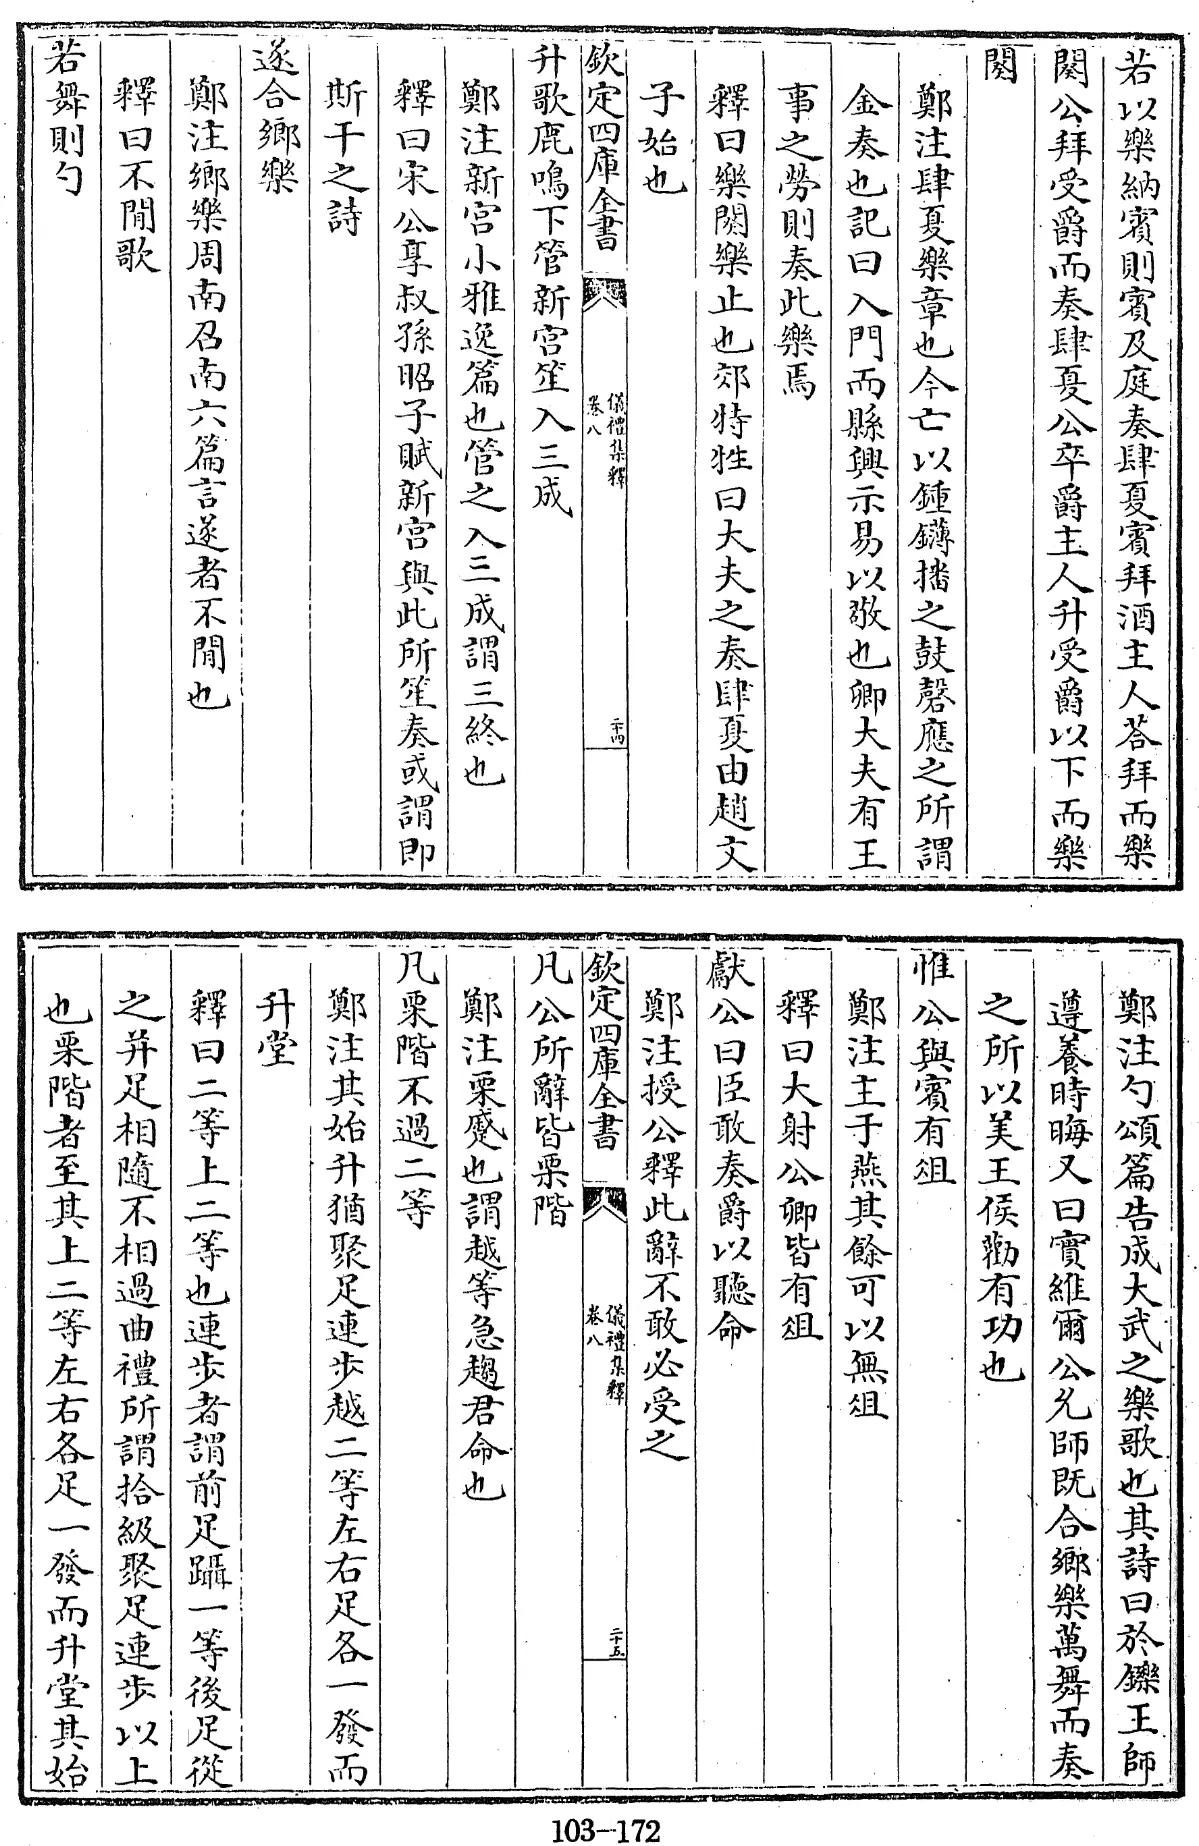 若以樂納賓則賓及庭奏肆夏賓拜酒主人荅拜而樂
闋公拜受爵而奏肆夏公卒爵主人升受爵以下而樂
闋
鄭注肆夏樂章也今亡以鍾鑮播之鼓磬應之所謂
金奏也記曰入門而縣興示易以敬也卿大夫有王
事之勞則奏此樂焉
釋曰樂闋樂止也郊特牲曰大夫之奏肆夏由趙文
子始也
欽定四庫全書
儀禮集釋
卷八
二十四
升歌鹿鳴下管新宮笙入三成
鄭注新宮小雅逸篇也管之入三成謂三終也
釋曰宋公享叔孫昭子賦新宮與此所笙奏或謂即
斯干之詩
遂合鄉樂
鄭注鄉樂周南召南六篇言遂者不閒也
釋曰不閒歌
若舞則勺
鄭注勺頌篇告成大武之樂歌也其詩曰於鑠王師
遵養時晦又曰實維爾公允師既合鄉樂萬舞而奏
之所以美王侯勸有功也
惟公與賓有俎
鄭注主于燕其餘可以無俎
釋曰大射公卿皆有俎
獻公曰臣敢奏爵以聽命
鄭注授公釋此辭不敢必受之
欽定四庫全書
儀禮集釋
卷八
二十五
凡公所辭皆栗階
鄭注栗蹙也謂越等急趨君命也
凡栗階不過二等
鄭注其始升猶聚足連步越二等左右足各一發而
升堂
釋曰二等上二等也連步者謂前足躡一等後足從
之并足相隨不相過曲禮所謂拾級聚足連步以上
也栗階者至其上二等左右各足一發而升堂其始
103-172